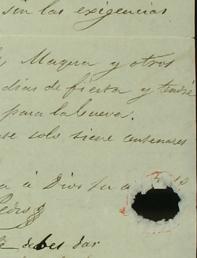 sin las exigencias
Maqua y otros
dias de fiesta y tendré
para la buena.
se solo tiene centenares
a á Dios su a
Pedro
debes dar